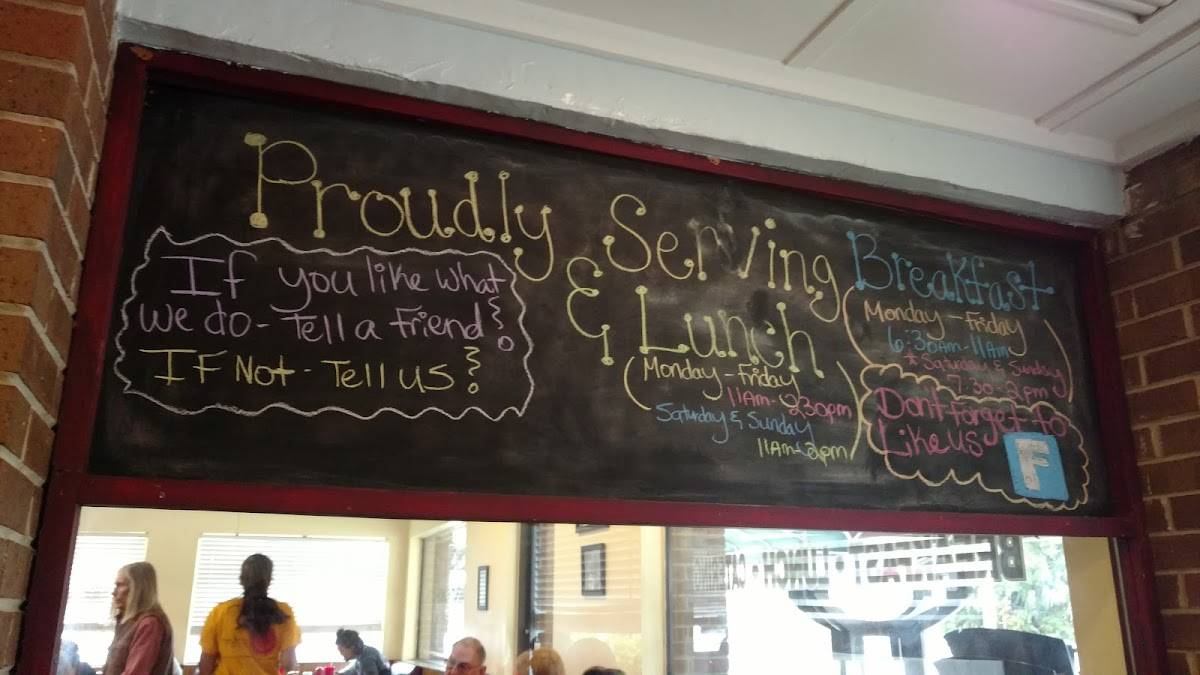 Proudly Serving Breakfast
& Lunch
If you like what
we do - Tell a Friend!
IF Not - Tell us!
Monday - Friday
11Am - 230pm
Saturday & Sunday
11Am - 2pm
Monday - Friday
6:30Am - 11Am
* Saturday & Sunday
7:30 - 2pm
Dont forget to
Like us
F